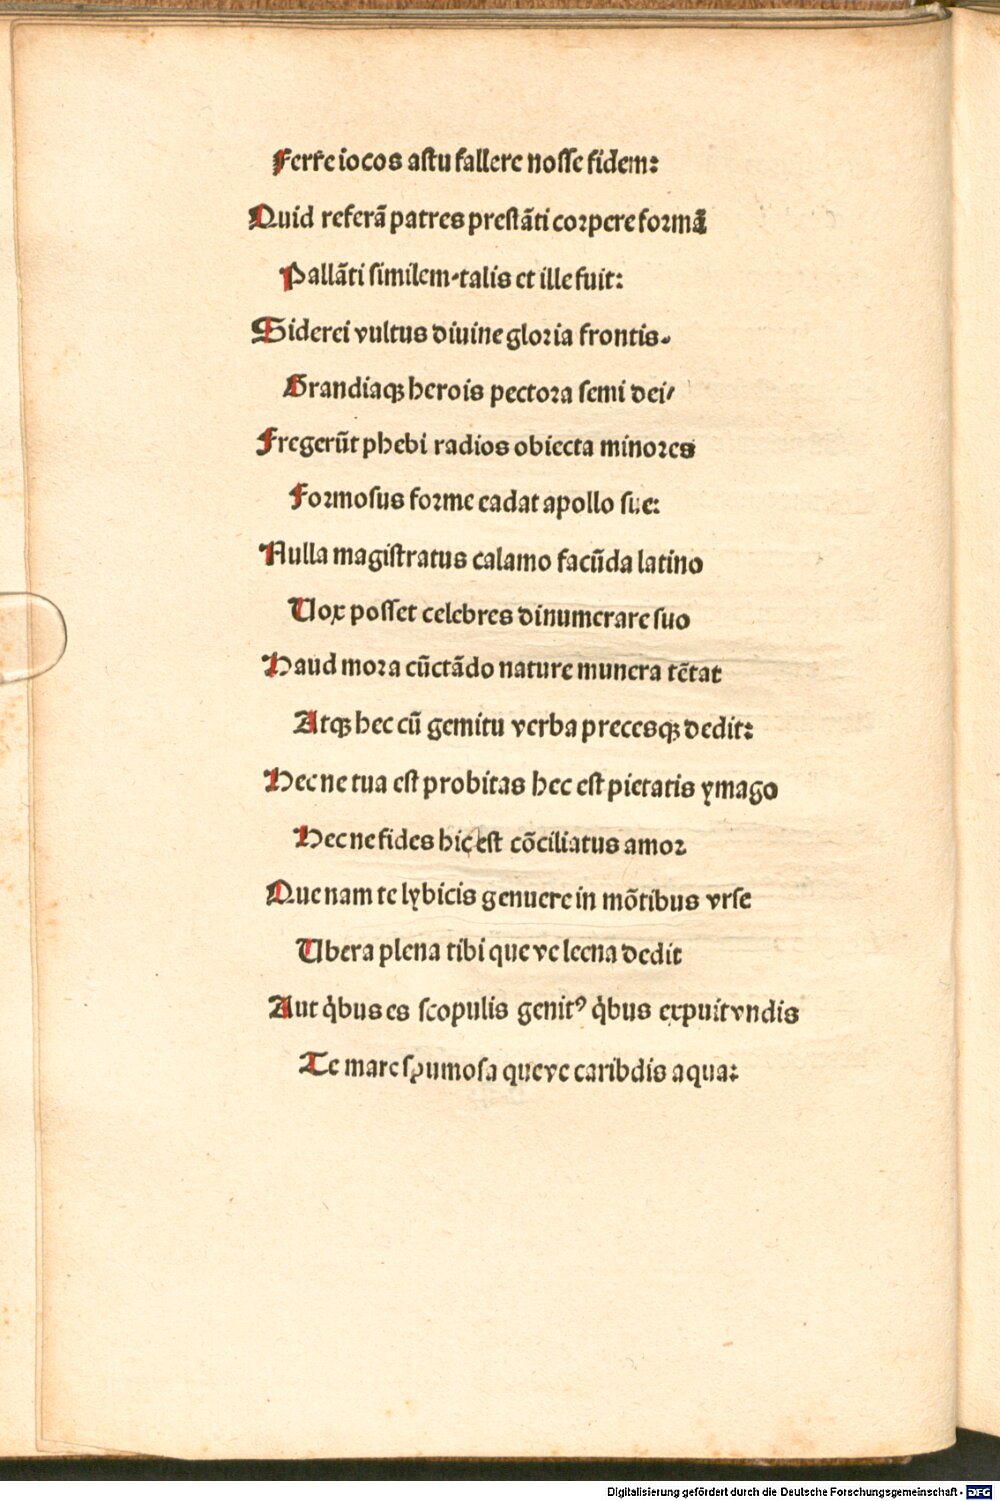 Ferre iocos astu fallere nosse fidem:
Quid referā patres prestāti corpere formā
Pallāti similem·talis et ille fuit:
Siderei vultus diuine gloria frontis.
Grandiaqꝫ herois pectora semi dei/
Fregerūt phebi radios obiecta minores
Formosus forme cadat apollo sue:
Nulla magistratus calamo facūda latino
Uox posset celebres dinumerare suo
Haud mora cūctādo nature munera tētat
Atqꝫ hec cū gemitu verba precesqꝫ dedit:
Hec ne tua est probitas hec est pietatis ymago
Hec ne fides hic est cōciliatus amor
Que nam te lybicis genuere in mōtibus vrse
Ubera plena tibi que ve leena dedit
Aut q̇bus es scopulis genitꝰ q̇bus expuit vndis
Te mare spumosa queve caribdis aqua:
Digitalisierung gefördert durch die Deutsche Forschungsgemeinschaft - DFG